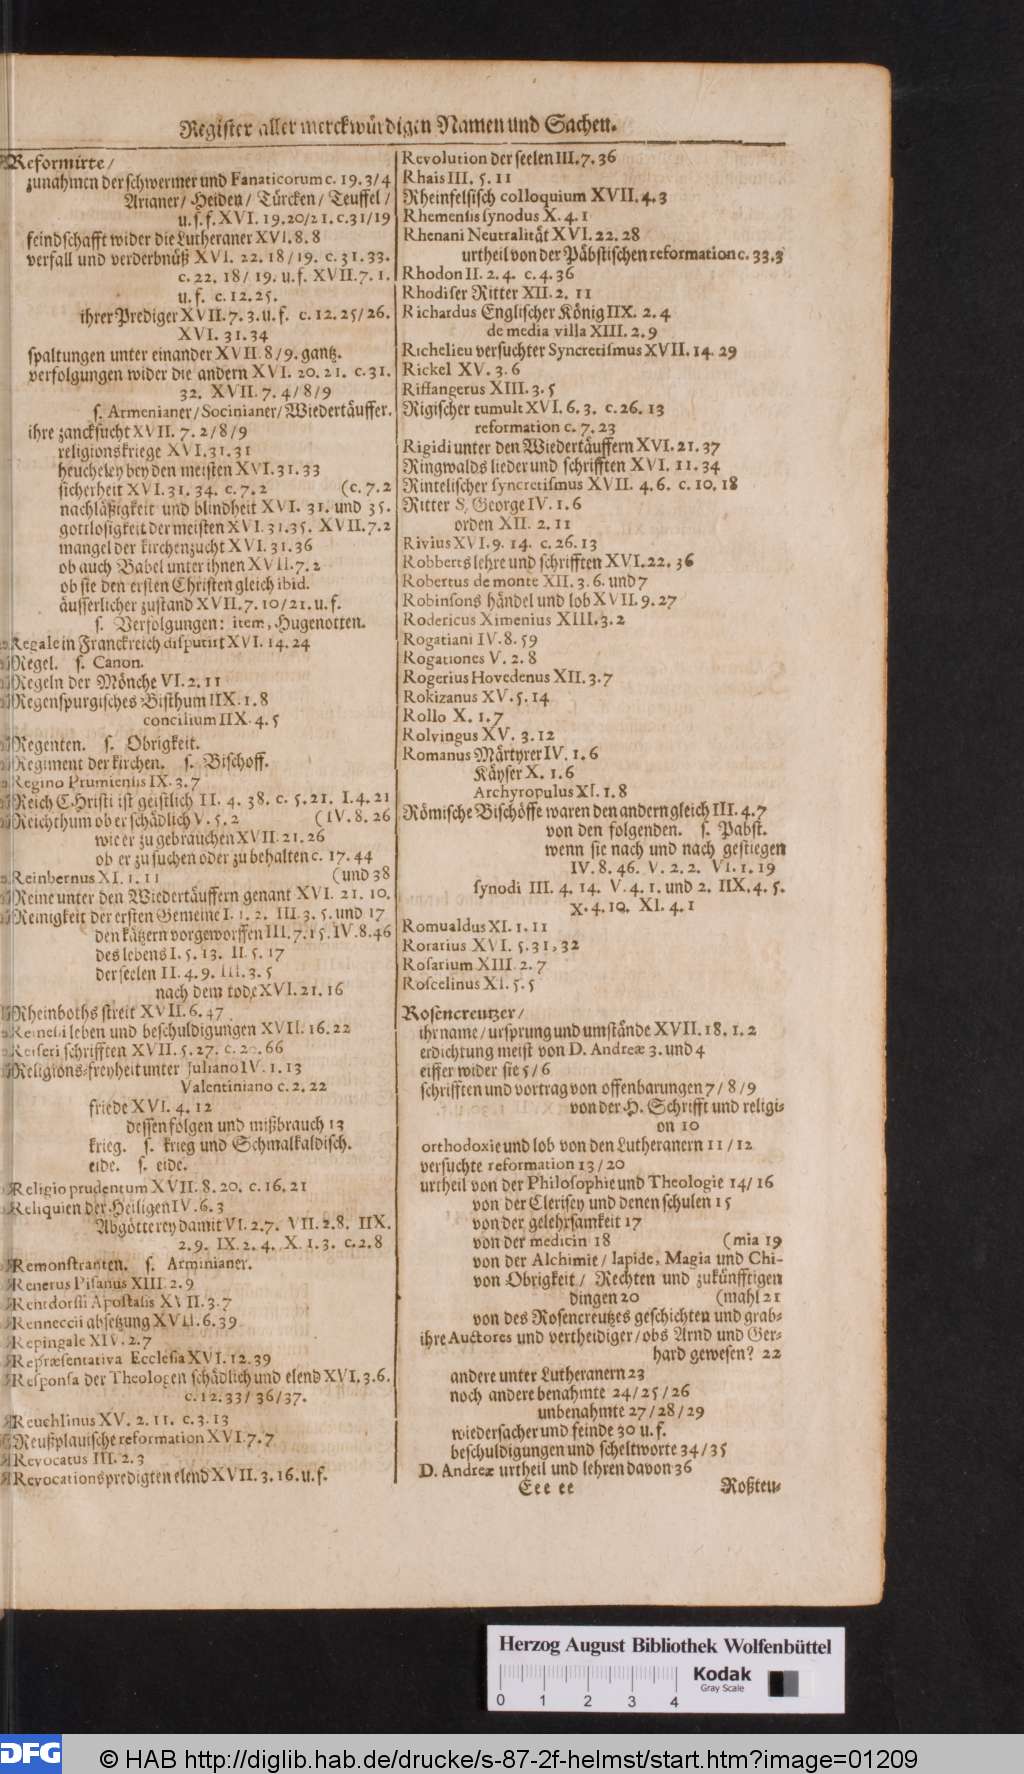 Register aller merckwürdigen Namen und Sachen.
Reformirte/
zunahmen der schwermer und Fanaticorum c. 19. 3/4
Arianer/ Heiden/ Türcken/ Teuffel/
u. s. f. XVI. 19. 20/21. c. 31/19
feindschafft wider die Lutheraner XVI. 8. 8
verfall und verderbnüß XVI. 22. 18/19. c. 31. 33.
c. 22. 18/ 19. u. f. XVII. 7. 1.
u. f. c. 12. 25.
ihrer Prediger XVII. 7. 3. u. f. c. 12. 25/26.
XVI. 31. 34
spaltungen unter einander XVII. 8/9. gantz.
verfolgungen wider die andern XVI. 20. 21. c. 31.
32. XVII. 7. 4/8/9
s. Armenianer/Socinianer/Wiedertäuffer.
ihre zancksucht XVII. 7. 2/8/9
religionskriege XVI. 31. 31
heucheley bey den meisten XVI. 31. 33
sicherheit XVI. 31. 34. c. 7. 2 (c. 7. 2
nachläßigkeit und blindheit XVI. 31. und 35.
gottlosigkeit der meisten XVI. 31. 35. XVII. 7. 2
mangel der kirchenzucht XVI. 31. 36
ob auch Babel unter ihnen XVII. 7. 2
ob sie den ersten Christen gleich ibid.
äusserlicher zustand XVII. 7. 10/21. u. f.
s. Verfolgungen: item, Hugenotten.
Regale in Franckreich disputirt XVI. 14. 24
Regel. s. Canon.
Regeln der Mönche VI. 2. 11
Regenspurgisches Bisthum IIX. 1. 8
concilium IIX. 4. 5
Regenten. s. Obrigkeit.
Regiment der kirchen. s. Bischoff.
Regino Prumiensis IX. 3. 7
Reich Christi ist geistlich II. 4. 38. c. 5. 21. I. 4. 21
Reichthum ob er schädlich V. 5. 2 (IV. 8. 26
wie er zu gebrauchen XVII. 21. 26
ob er zu suchen oder zu behalten c. 17. 44
Reinbernus XI. 1. 11 (und 38
Reine unter den Wiedertäuffern genant XVI. 21. 10.
Reinigkeit der ersten Gemeine I. 1. 2. III. 3. 5. und 17
den kätzern vorgeworffen III. 7. 15. IV. 8. 46
des lebens I. 5. 13. II. 5. 17
der seelen II. 4. 9. III. 3. 5
nach dem tode XVI. 21. 16
Rheinboths streit XVII. 6. 47
Reinesii leben und beschuldigungen XVII. 16. 22
Reiseri schrifften XVII. 5. 27. c. 20. 66
Religions-freyheit unter Juliano IV. 1. 13
Valentiniano c. 2. 22
friede XVI. 4. 12
dessen folgen und mißbrauch 13
krieg. s. krieg und Schmalkaldisch.
eide. s. eide.
Religio prudentum XVII. 8. 20. c. 16. 21
Reliquien der Heiligen IV. 6. 3
Abgötterey damit VI. 2. 7. VII. 2. 8. IIX.
2. 9. IX. 2. 4. X. 1. 3. c. 2. 8
Remonstranten. s. Arminianer.
Renerus Pisanus XIII. 2. 9
Rentdorfii Apostasis XVII. 3. 7
Renneccii absetzung XVII. 6. 39
Repingale XIV. 2. 7
Repræsentativa Ecclesia XVI. 12. 39
Responsa der Theologen schädlich und elend XVI. 3. 6.
c. 12. 33/ 36/37.
Reuchlinus XV. 2. 11. c. 3. 13
Reußplauische reformation XVI. 7. 7
Revocatus III. 2. 3
Revocationspredigten elend XVII. 3. 16. u. f.
Revolution der seelen III. 7. 36
Rhais III. 5. 11
Rheinfelsisch colloquium XVII. 4. 3
Rhemensis synodus X. 4. 1
Rhenani Neutralität XVI. 22. 28
urtheil von der Päbstischen reformation c. 33. 3
Rhodon II. 2. 4. c. 4. 36
Rhodiser Ritter XII. 2. 11
Richardus Englischer König IIX. 2. 4
de media villa XIII. 2. 9
Richelieu versuchter Syncretismus XVII. 14. 29
Rickel XV. 3. 6
Riffangerus XIII. 3. 5
Rigischer tumult XVI. 6. 3. c. 26. 13
reformation c. 7. 23
Rigidi unter den Wiedertäuffern XVI. 21. 37
Ringwalds lieder und schrifften XVI. 11. 34
Rintelischer syncretismus XVII. 4. 6. c. 10. 18
Ritter S. George IV. 1. 6
orden XII. 2. 11
Rivius XVI. 9. 14. c. 26. 13
Robberts lehre und schrifften XVI. 22. 36
Robertus de monte XII. 3. 6. und 7
Robinsons händel und lob XVII. 9. 27
Rodericus Ximenius XIII. 3. 2
Rogatiani IV. 8. 59
Rogationes V. 2. 8
Rogerius Hovedenus XII. 3. 7
Rokizanus XV. 5. 14
Rollo X. 1. 7
Rolvingus XV. 3. 12
Romanus Märtyrer IV. 1. 6
Käyser X. 1. 6
Archyropulus XI. 1. 8
Römische Bischöffe waren den andern gleich III. 4. 7
von den folgenden. s. Pabst.
wenn sie nach und nach gestiegen
IV. 8. 46. V. 2. 2. VI. 1. 19
synodi III. 4. 14. V. 4. 1. und 2. IIX. 4. 5.
X. 4. 10. XI. 4. 1
Romualdus XI. 1. 11
Rorarius XVI. 5. 31, 32
Rosarium XIII. 2. 7
Roscelinus XI. 5. 5
Rosencreutzer/
ihr name/ursprung und umstände XVII. 18. 1. 2
erdichtung meist von D. Andreæ 3. und 4
eiffer wider sie 5/6
schrifften und vortrag von offenbarungen 7/8/9
von der H. Schrifft und religi-
on 10
orthodoxie und lob von den Lutheranern 11/12
versuchte reformation 13/20
urtheil von der Philosophie und Theologie 14/16
von der Clerisey und denen schulen 15
von der gelehrsamkeit 17
von der medicin 18 (mia 19
von der Alchimie/ lapide, Magia und Chi-
von Obrigkeit/ Rechten und zukünfftigen
dingen 20 (mahl 21
von des Rosencreutzes geschichten und grab-
ihre Auctores und vertheidiger/obs Arnd und Ger-
hard gewesen? 22
andere unter Lutheranern 23
noch andere benahmte 24/25/26
unbenahmte 27/28/29
wiedersacher und feinde 30 u. f.
beschuldigungen und scheltworte 34/35
D. Andreæ urtheil und lehren davon 36
Eee ee Roßteu-
Herzog August Bibliothek Wolfenbüttel
0 1 2 3 4
Kodak
Gray Scale
DFG © HAB http://diglib.hab.de/drucke/s-87-2f-helmst/start.htm?image=01209